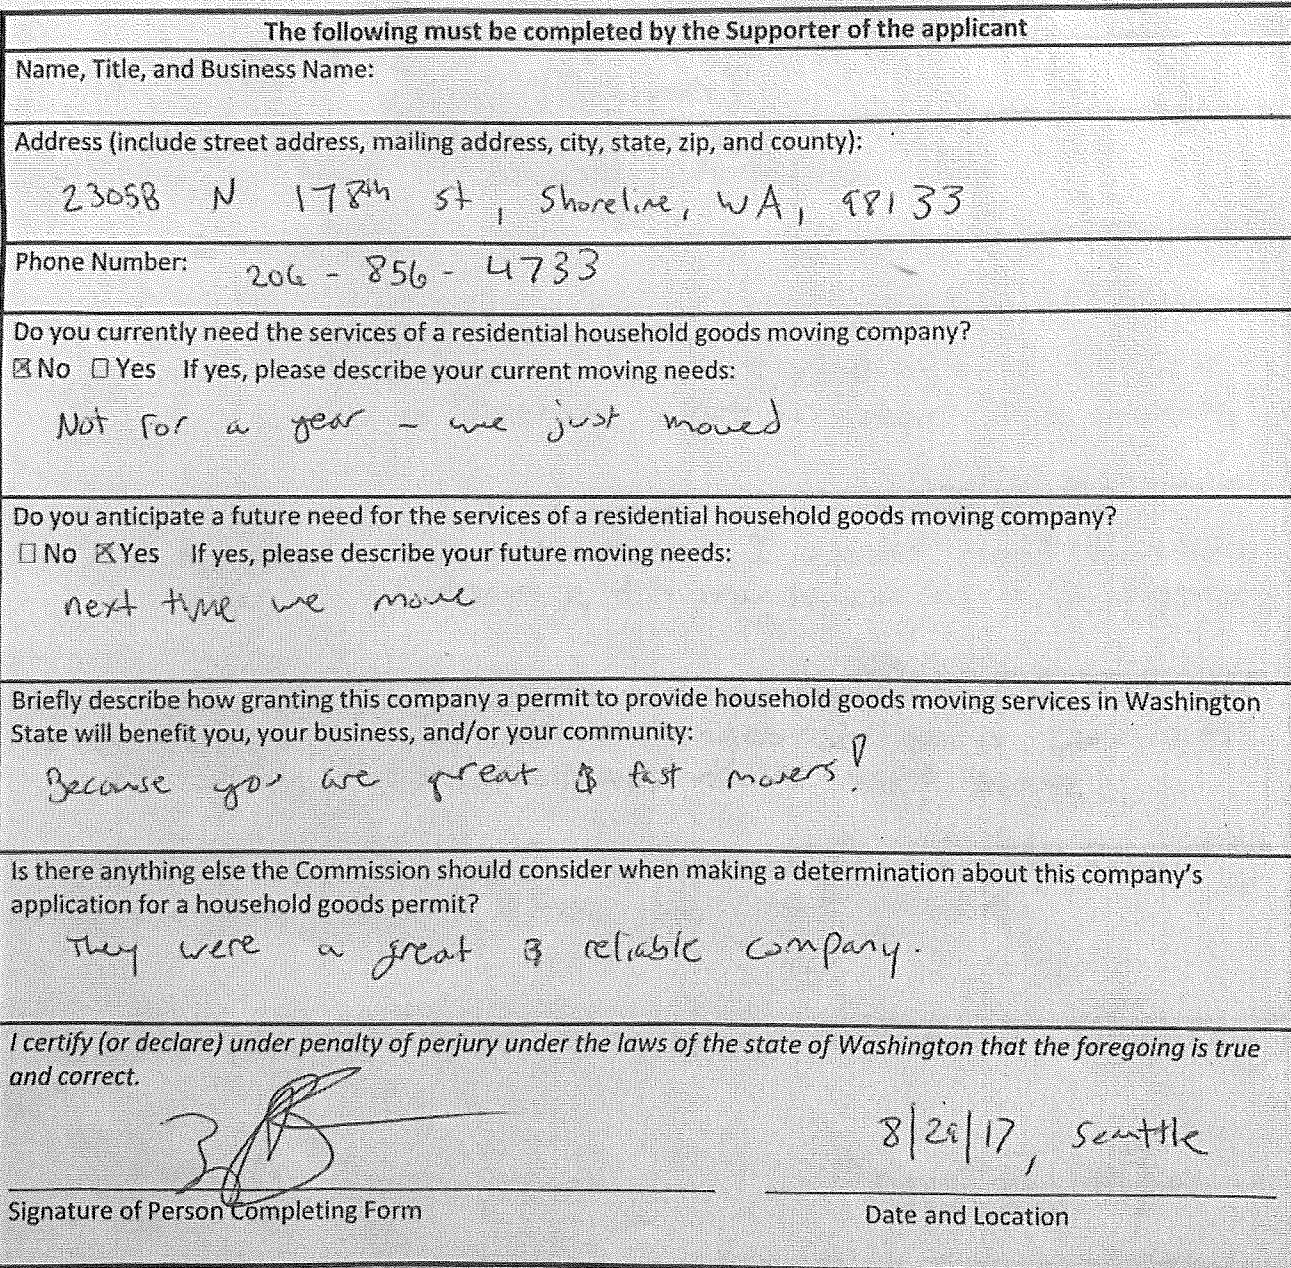 The following must be completed by the Supporter of the applicant
Name, Title, and Business Name:
Address (include street address, mailing address, city, state, zip, and county):
2305B N 178th st, Shoreline, WA, 98133
Phone Number: 206-856-4733
Do you currently need the services of a residential household goods moving company?
☒ No ☐ Yes If yes, please describe your current moving needs:
Not for a year - we just moved
Do you anticipate a future need for the services of a residential household goods moving company?
☐ No ☒ Yes If yes, please describe your future moving needs:
next time we move
Briefly describe how granting this company a permit to provide household goods moving services in Washington
State will benefit you, your business, and/or your community:
Because you are great & fast movers!
Is there anything else the Commission should consider when making a determination about this company's
application for a household goods permit?
They were a great & reliable company.
I certify (or declare) under penalty of perjury under the laws of the state of Washington that the foregoing is true
and correct.
8/29/17, Seattle
Signature of Person Completing Form Date and Location